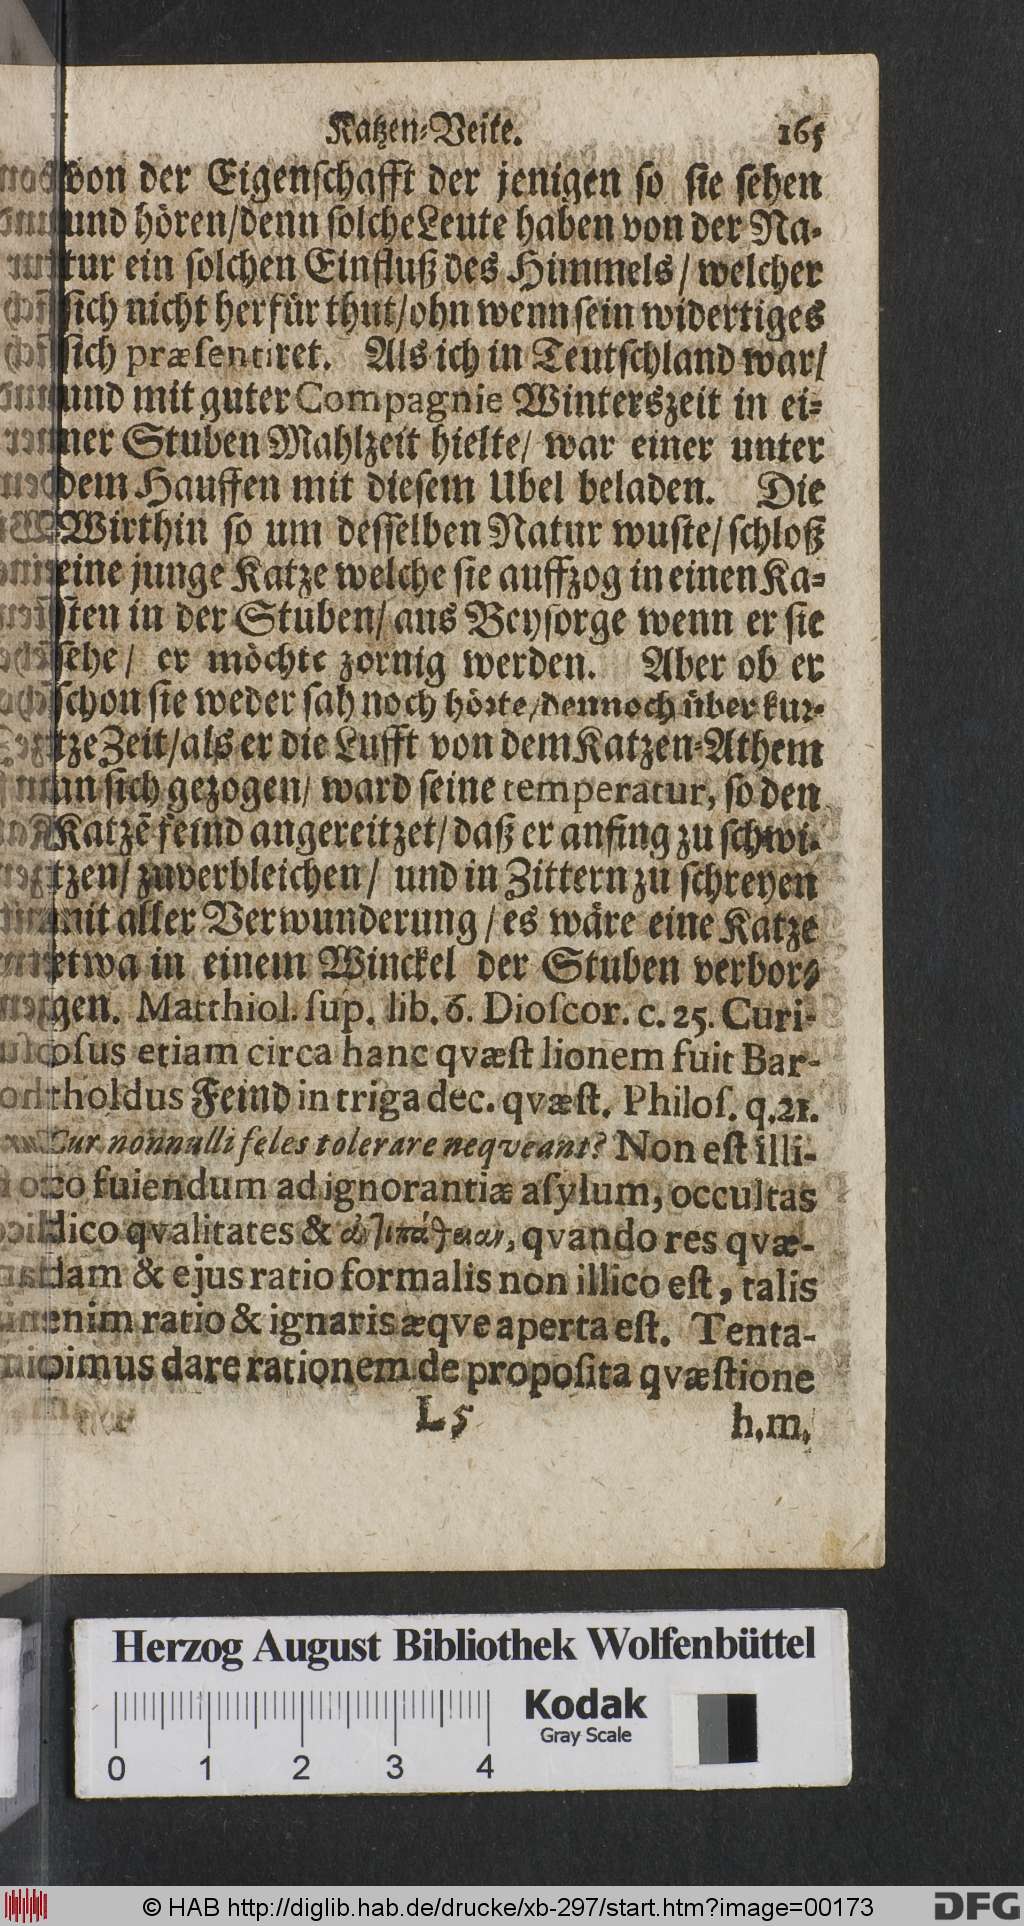 Katzen-Veite. 165
von der Eigenschafft der jenigen so sie sehen
und hören/denn solche Leute haben von der Na-
tur ein solchen Einfluß des Himmels/ welcher
sich nicht herfür thut/ohn wenn sein widertiges
sich præsentiret. Als ich in Teutschland war/
und mit guter Compagnie Winterszeit in ei-
ner Stuben Mahlzeit hielte/ war einer unter
dem Hauffen mit diesem Ubel beladen. Die
Wirthin so um desselben Natur wuste/schloß
eine junge Katze welche sie auffzog in einen Ka-
sten in der Stuben/ aus Beysorge wenn er sie
sehe/ er möchte zornig werden. Aber ob er
schon sie weder sah noch hörte/dennoch über kur-
tze Zeit/als er die Lufft von dem Katzen-Athem
an sich gezogen/ ward seine temperatur, so den
Katzē feind angereitzet/ daß er anfing zu schwi-
tzen/ zuverbleichen/ und in Zittern zu schreyen
mit aller Verwunderung/es wäre eine Katze
etwa in einem Winckel der Stuben verbor-
gen. Matthiol. sup. lib. 6. Dioscor. c. 25. Curi-
osus etiam circa hanc qvæst lionem fuit Bar-
tholdus Feind in triga dec. qvæst. Philos. q.21.
Cur nonnulli feles tolerare neqveant? Non est illi-
co fuiendum ad ignorantiæ asylum, occultas
dico qvalitates & ἀντιπάθειαν, qvando res qvæ-
dam & ejus ratio formalis non illico est, talis
enim ratio & ignaris æqve aperta est. Tenta-
bimus dare rationem de proposita qvæstione
L 5 h.m.
Herzog August Bibliothek Wolfenbüttel
Kodak
Gray Scale
0 1 2 3 4
© HAB http://diglib.hab.de/drucke/xb-297/start.htm?image=00173 DFG